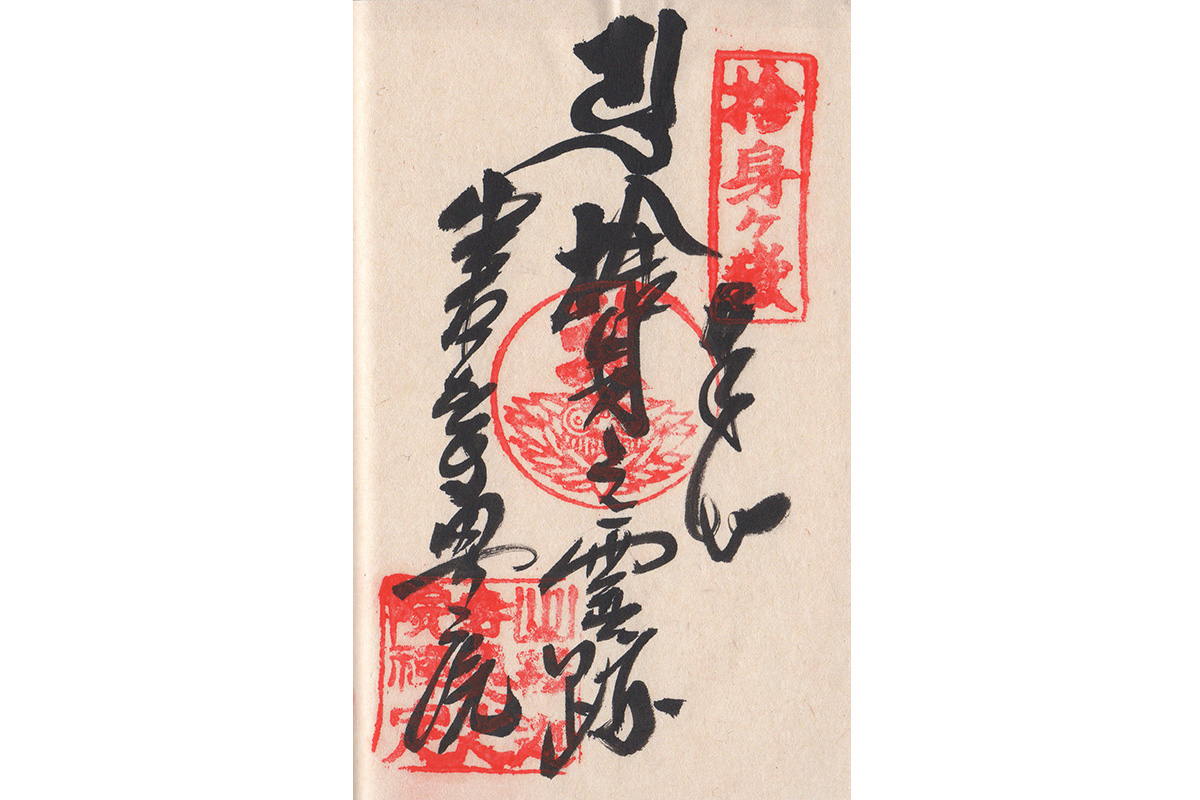 捨身ヶ嶽
奉拝
捨身之霊跡
出釈迦寺奥院